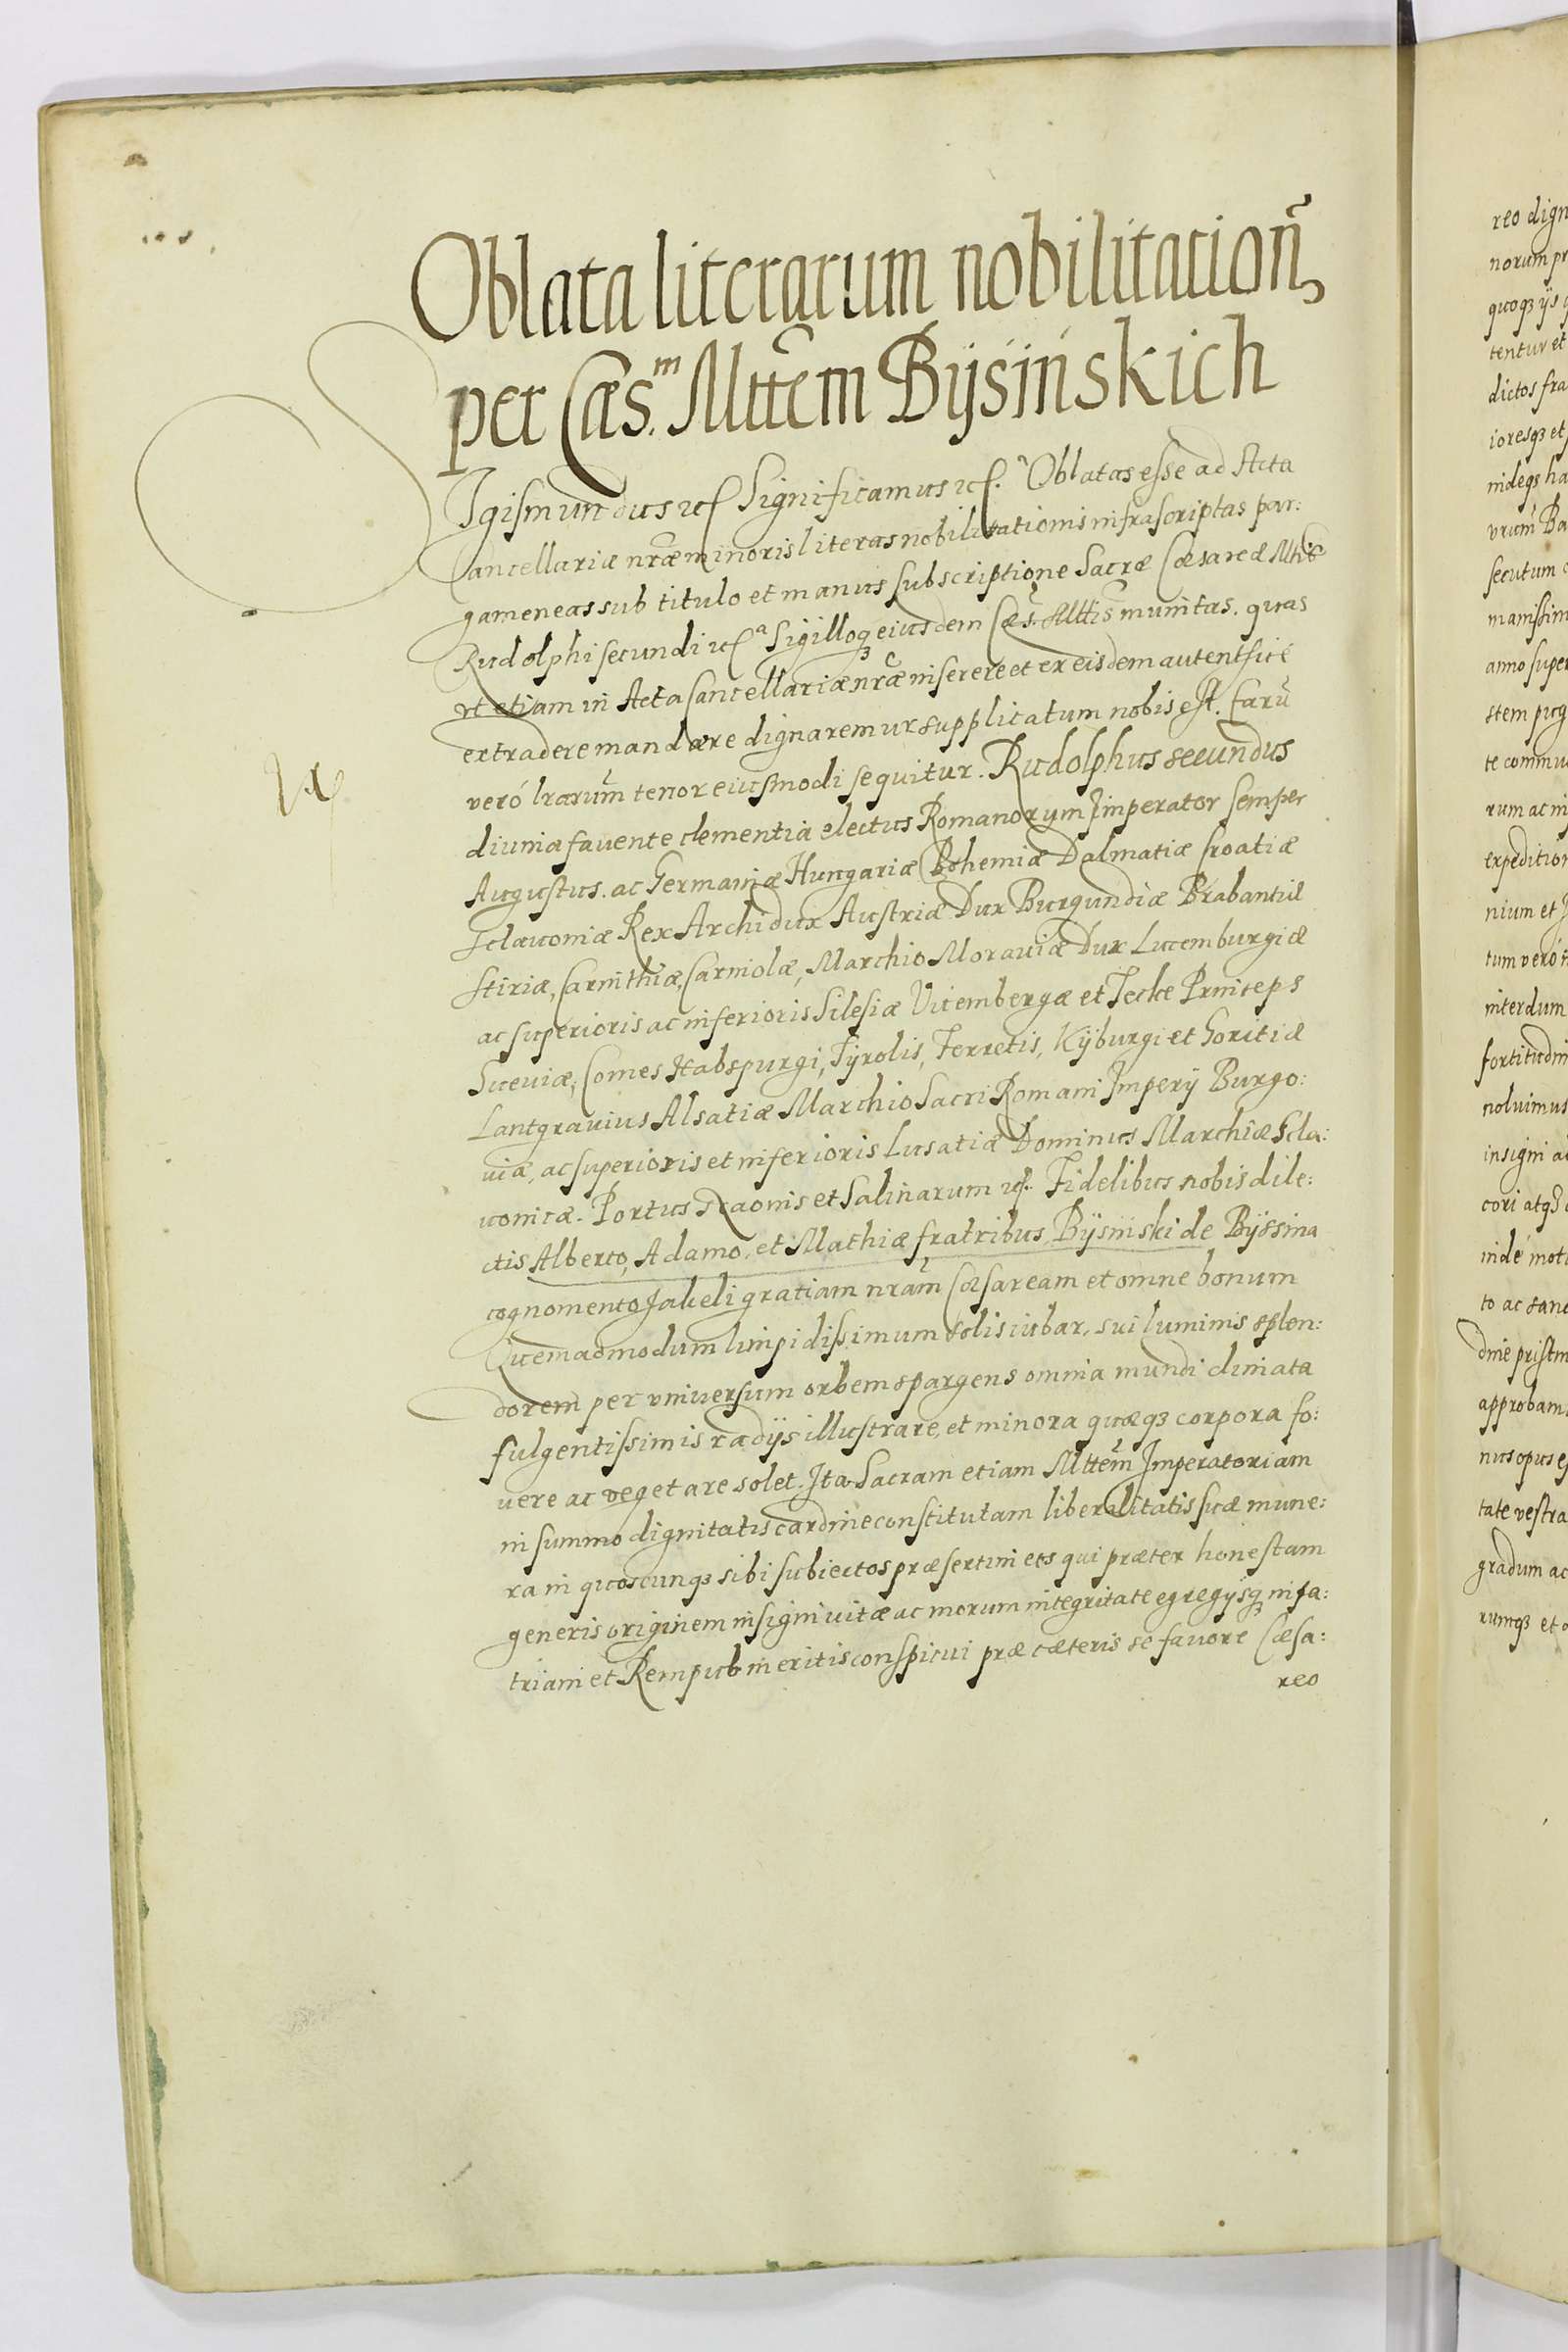 Oblata literarum nobilitation̄,
per Cæs.ᵐ Mtt̃em Bÿsińskich
Sgismundus etc Significamus etc. Oblatas esse ad Acta
Cancellariæ nr̃æ minoris literas nobilitationis infrascriptas par:
gameneas sub titulo et manus subscriptione Sacræ Cæsareæ Mttis
Rudolphi secundi etc Sigilloq3 eiusdem Cæs. Mttis munitas. quas
vt etiam in Acta Cancellariæ nr̃æ inserere et ex eisdem autentice
extradere mandare dignaremur supplicatum nobis est. Earū
veró lrarum̃ tenor eiusmodi sequitur. Rudolphus secundus
diuina fauente clementia electus Romanorum Imperator semper
Augustus. ac Germaniæ Hungariæ Bohemiæ Dalmatiæ Croatiæ
Sclauoniæ Rex Archidux Austriæ Dux Burgundiæ Brabantiæ
Stiriæ, Carinthiæ, Carniolæ, Marchio Morauiæ Dux Lucemburgiæ
ac superioris ac inferioris Silesiæ Vitembergæ et Tecke Princeps
Sueuiæ, Comes Habspurgi, Tÿrolis, Ferretis, Kÿburgi et Goritiæ
Lantgrauius Alsatiæ Marchio Sacri Romani Imperÿ Burgo:
uiæ, ac superioris et inferioris Lusatiæ Dominus Marchiæ Scla:
uonicæ. Portus Naonis et Salinarum etc. Fidelibus nobis dile:
ctis Alberto, Adamo, et Mathiæ fratribus Bÿsinski de Bÿssina
cognomento Jakeli gratiam nram̃ Cæsaream et omne bonum
Quemadmodum limpidissimum solis iubar, sui luminis splen:
dorem per vniuersum orbem spargens omnia mundi climata
fulgentissimis radÿs illustrare, et minora quæq3 corpora fo:
uere ac vegetare solet. Ita Sacram etiam Mttem̃ Imperatoriam
in summo dignitatis cardine constitutam liberalitatis suæ mune:
ra in quoscunq3 sibi subiectos præsertim eos qui præter honestam
generis originem insigni uitæ ac morum integritate egregÿsq3 in pa:
triam et Rempub meritis conspicui præ cæteris se fauore Cæsa:
reo
reo dign
norum pr
quoq3 ÿs
tentur et
dictos fra
ioresq3 et
indeq3 ha
vrum̃ Ba
secutum
manissim
anno super
stem pug
te commu
rum ac in
expedition
nium et
tum veró
interdum
fortitudin
noluimus
insigni a
cori atq3
indé mot
to ac sanc
dine pristin
approbam
nus opus e
tate vestra
gradum ac
rumq3 et